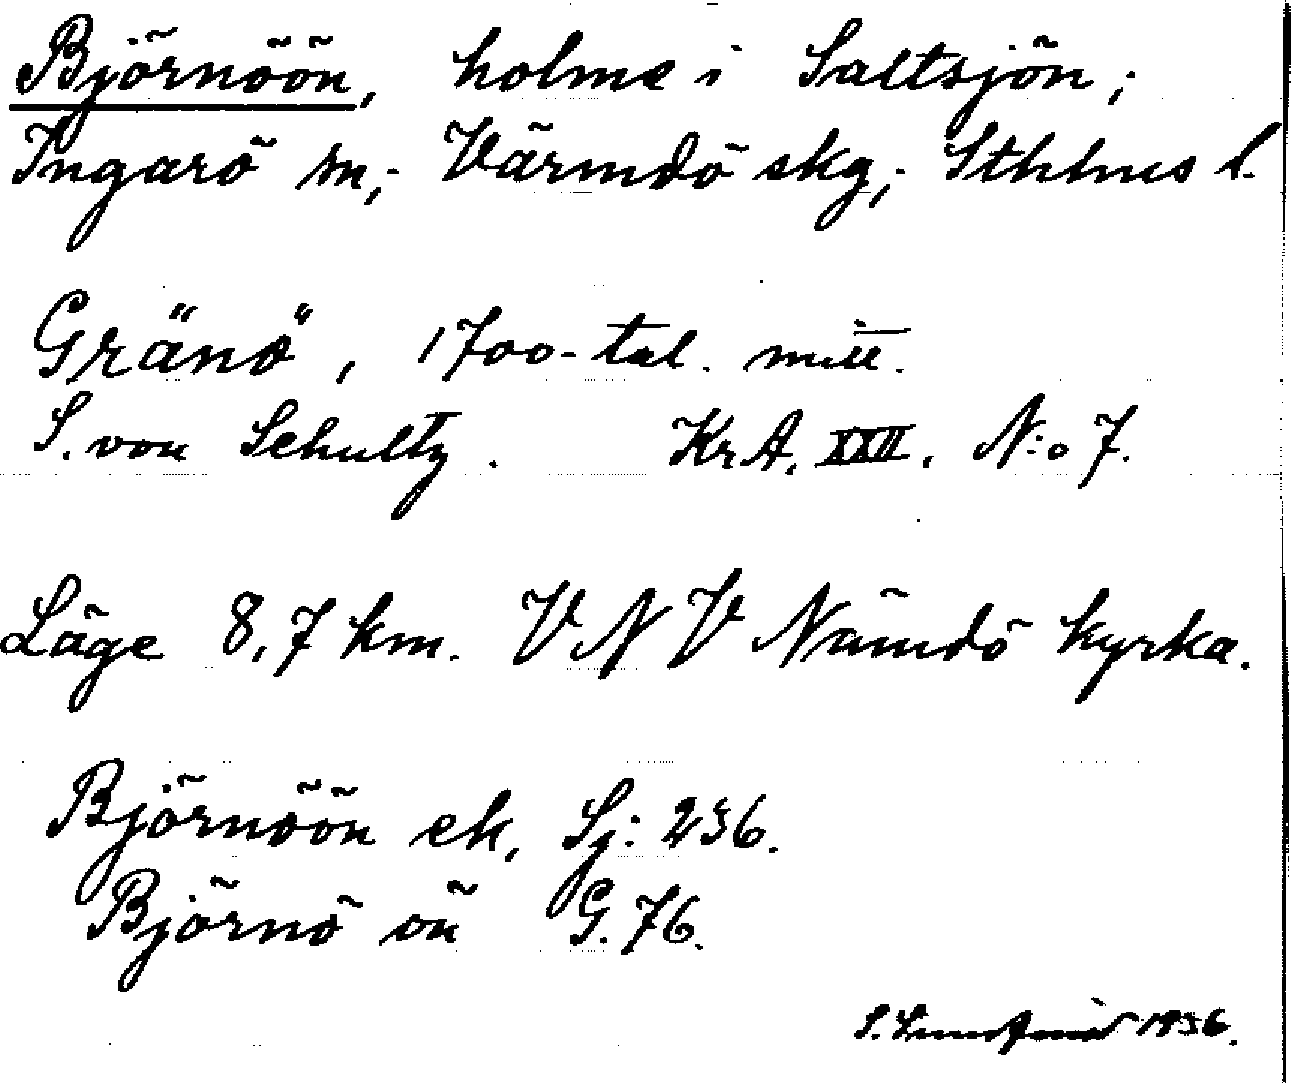 Björnöön, holme i Saltsjön;
Ingarö sn; Värmdö skg; Sthlms l.
Gränö, 1700-tal. mitt.
S. von Schultz. KrA. XXII. N:o 7.
Läge 8,7 km. VNV Nämdö kyrka.
Björnöön ek. Sj: 236.
Björnö ön G. 76.
S. 1936.